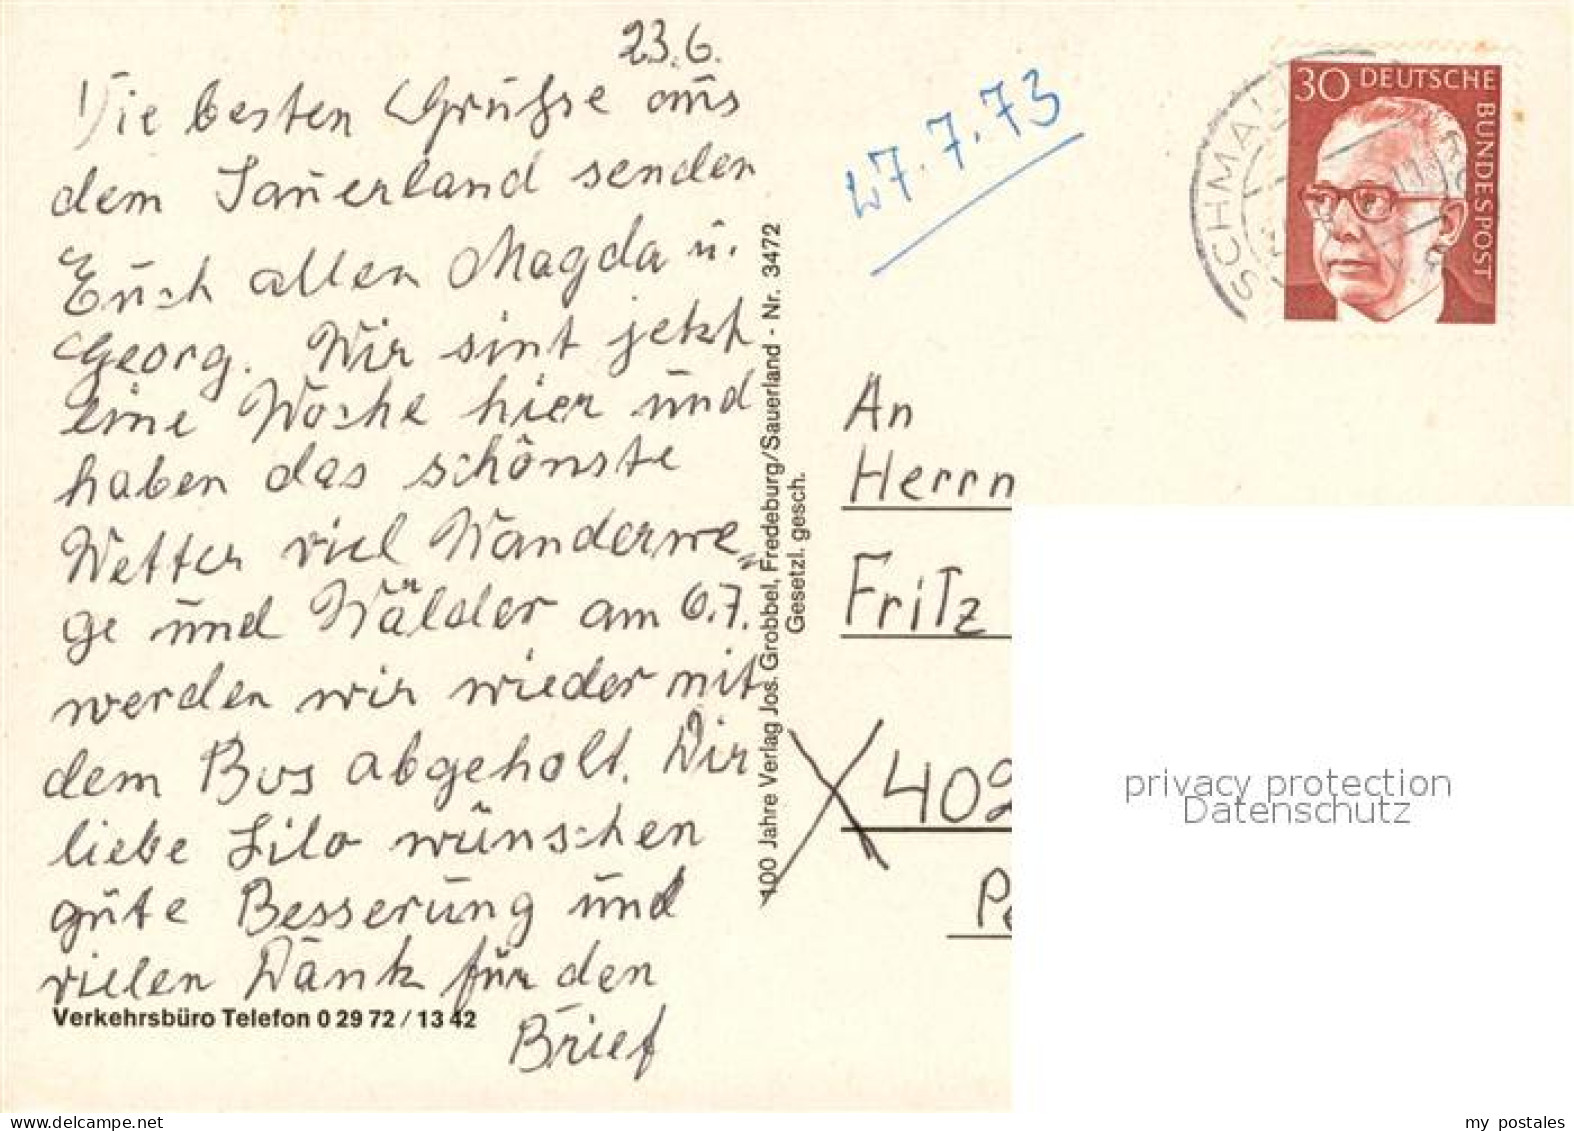 23.6.
Die besten Grühse aus
dem Sauerland senden
Euch allen Magda u.
Georg. Wir sint jetzt
eine Woche hier und
haben das schönste
Wetter viel Wanderwe=
ge und Wälder am 6.7.
werden wir wieder mit
dem Bus abgeholt. Dir
liebe Lilo wünschen
gute Besserung und
vielen Dank für den
Brief
Verkehrsbüro Telefon 0 29 72 / 13 42
100 Jahre Verlag Jos. Grobbel, Fredeburg/Sauerland - Nr. 3472
Gesetzl. gesch.
7.7.73
30 DEUTSCHE
BUNDESPOST
SCHMAL
An
Herrn
Fritz
402
Pe
privacy protection
Datenschutz
www.delcampe.net
my postales